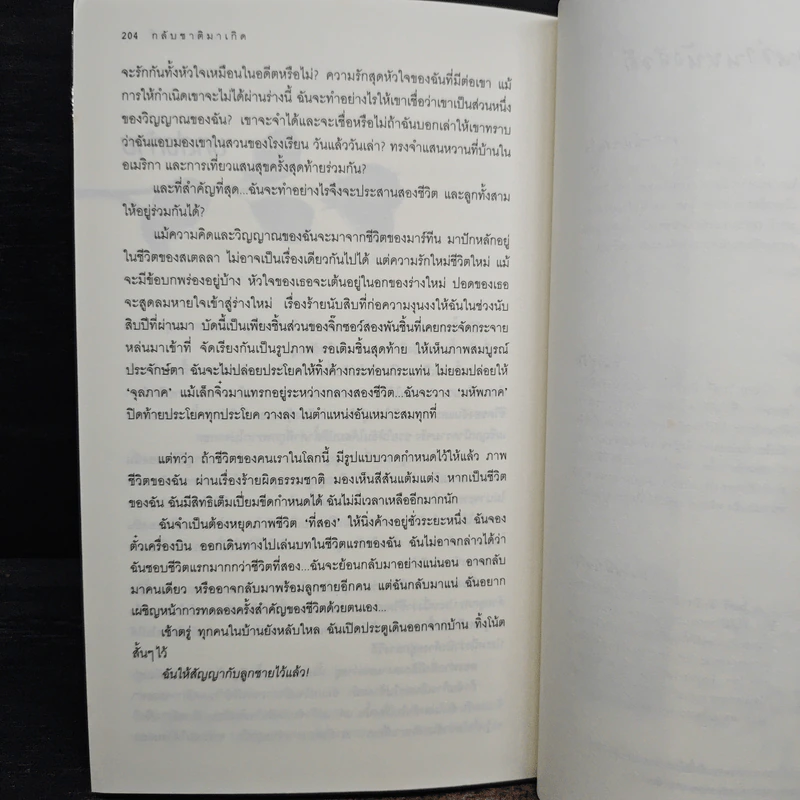 204 กลับชาติมาเกิด
จะรักกันทั้งหัวใจเหมือนในอดีตหรือไม่? ความรักสุดหัวใจของฉันที่มีต่อเขา แม้
การให้กำเนิดเขาจะไม่ได้ผ่านร่างนี้ ฉันจะทำอย่างไรให้เขาเชื่อว่าเขาเป็นส่วนหนึ่ง
ของวิญญาณของฉัน? เขาจะจำได้และจะเชื่อหรือไม่ถ้าฉันบอกเล่าให้เขาทราบ
ว่าฉันแอบมองเขาในสวนของโรงเรียน วันแล้ววันเล่า? ทรงจำแสนหวานที่บ้านใน
อเมริกา และการเที่ยวแสนสุขครั้งสุดท้ายร่วมกัน?
และที่สำคัญที่สุด...ฉันจะทำอย่างไรจึงจะประสานสองชีวิต และลูกทั้งสาม
ให้อยู่ร่วมกันได้?
แม้ความคิดและวิญญาณของฉันจะมาจากชีวิตของมาร์ทีน มาปักหลักอยู่
ในชีวิตของสเตลลา ไม่อาจเป็นเรื่องเดียวกันไปได้ แต่ความรักใหม่ชีวิตใหม่ แม้
จะมีข้อบกพร่องอยู่บ้าง หัวใจของเธอจะเต้นอยู่ในอกของร่างใหม่ ปอดของเธอ
จะสูดลมหายใจเข้าสู่ร่างใหม่ เรื่องร้ายนับสิบที่ก่อความงุนงงให้ฉันในช่วงนับ
สิบปีที่ผ่านมา บัดนี้เป็นเพียงชิ้นส่วนของจิ๊กซอว์สองพันชิ้นที่เคยกระจัดกระจาย
หล่นมาเข้าที่ จัดเรียงกันเป็นรูปภาพ รอเติมชิ้นสุดท้าย ให้เห็นภาพสมบูรณ์
ประจักษ์ตา ฉันจะไม่ปล่อยประโยคให้ทิ้งค้างกระท่อนกระแท่น ไม่ยอมปล่อยให้
'จุลภาค' แม้เล็กจิ๋วมาแทรกอยู่ระหว่างกลางสองชีวิต...ฉันจะวาง 'มหัพภาค'
ปิดท้ายประโยคทุกประโยค วางลง ในตำแหน่งอันเหมาะสมทุกที่
แต่ทว่า ถ้าชีวิตของคนเราในโลกนี้ มีรูปแบบวาดกำหนดไว้ให้แล้ว ภาพ
ชีวิตของฉัน ผ่านเรื่องร้ายผิดธรรมชาติ มองเห็นสีสันแต้มแต่ง หากเป็นชีวิต
ของฉัน ฉันมีสิทธิเต็มเปี่ยมขีดกำหนดได้ ฉันไม่มีเวลาเหลืออีกมากนัก
ฉันจำเป็นต้องหยุดภาพชีวิต 'ที่สอง' ให้นิ่งค้างอยู่ชั่วระยะหนึ่ง ฉันจอง
ตั๋วเครื่องบิน ออกเดินทางไปเล่นบทในชีวิตแรกของฉัน ฉันไม่อาจกล่าวได้ว่า
ฉันชอบชีวิตแรกมากกว่าชีวิตที่สอง...ฉันจะย้อนกลับมาอย่างแน่นอน อาจกลับ
มาคนเดียว หรืออาจกลับมาพร้อมลูกชายอีกคน แต่ฉันกลับมาแน่ ฉันอยาก
เผชิญหน้าการทดลองครั้งสำคัญของชีวิตด้วยตนเอง...
เช้าตรู่ ทุกคนในบ้านยังหลับใหล ฉันเปิดประตูเดินออกจากบ้าน ทิ้งโน้ต
สั้นๆ ไว้
ฉันให้สัญญากับลูกชายไว้แล้ว!